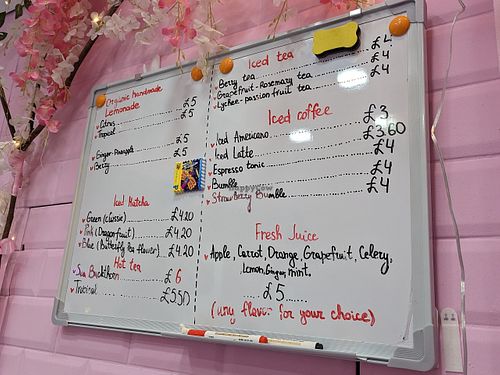 Organic handmade
Lemonade
Citrus £5
Tropical £5
Ginger-Pineapple £5
Berry £5
Iced Matcha
Green (classic) £4.20
Pink (Dragonfruit) £4.20
Blue (Butterfly Pea flower) £4.20
Hot tea
Sea Buckthorn £6
Tropical £5.50
Iced tea
Berry tea £4
Grapefruit-Rosemary tea £4
Lychee-passion fruit tea £4
Iced coffee
Iced Americano £3
Iced Latte £3.60
Espresso tonic £4
Bumble £4
Strawberry Bumble £4
Fresh Juice
Apple, Carrot, Orange, Grapefruit, Celery,
Lemon, Ginger, mint.
£5
(any flavor for your choice)
HappyCow